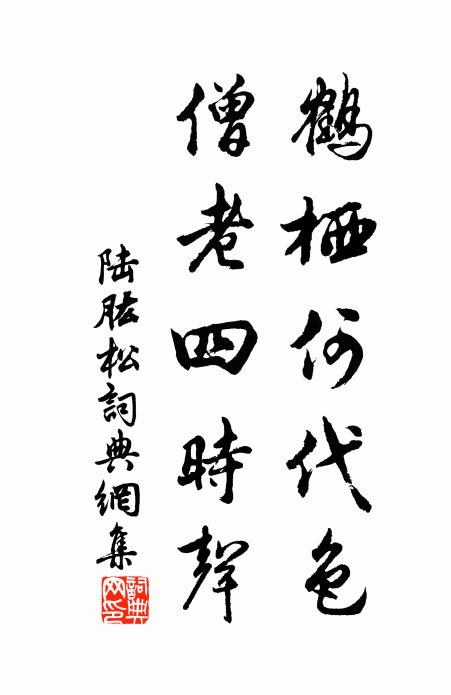 鶴栖何代色
僧老四時聲
陆肱松詞典網集
詞典网印